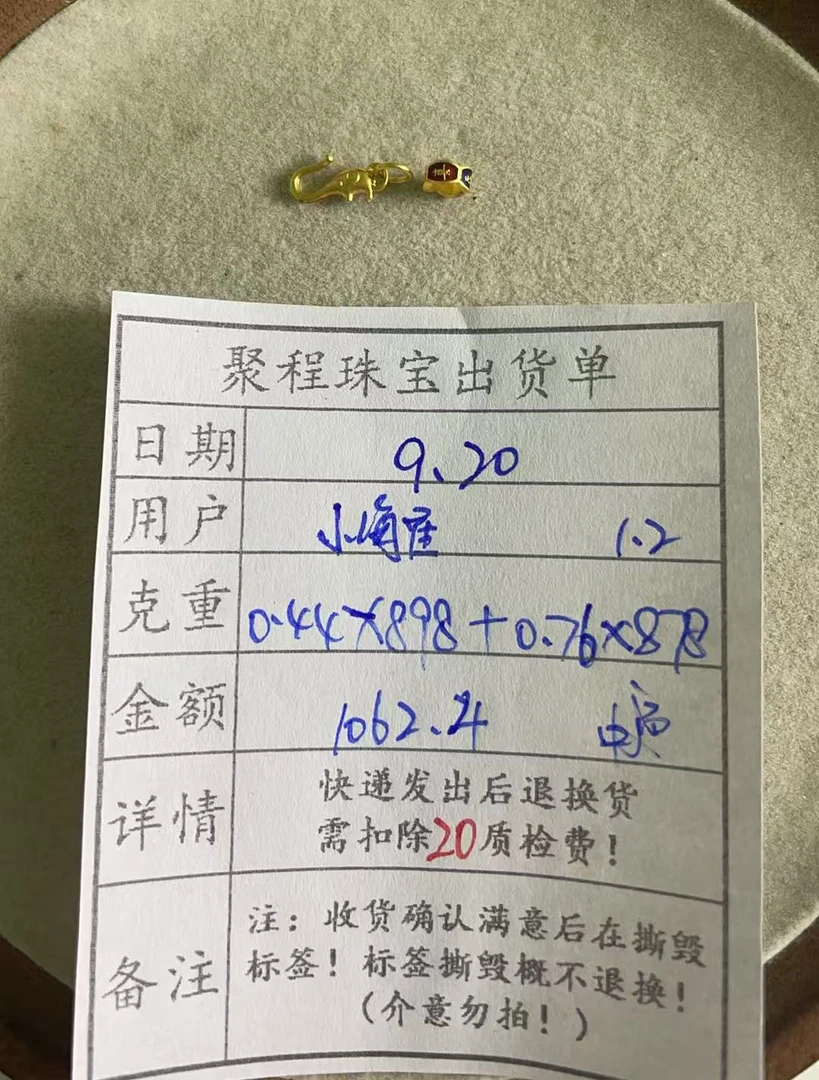 聚程珠宝出货单
日期 9.20
用户 小 1.2
克重 0.44×898+0.76×878
金额 1062.4
详情 快递发出后退换货
需扣除20质检费！
备注 注：收货确认满意后在撕毁
标签！标签撕毁概不退换！
（介意勿拍！）